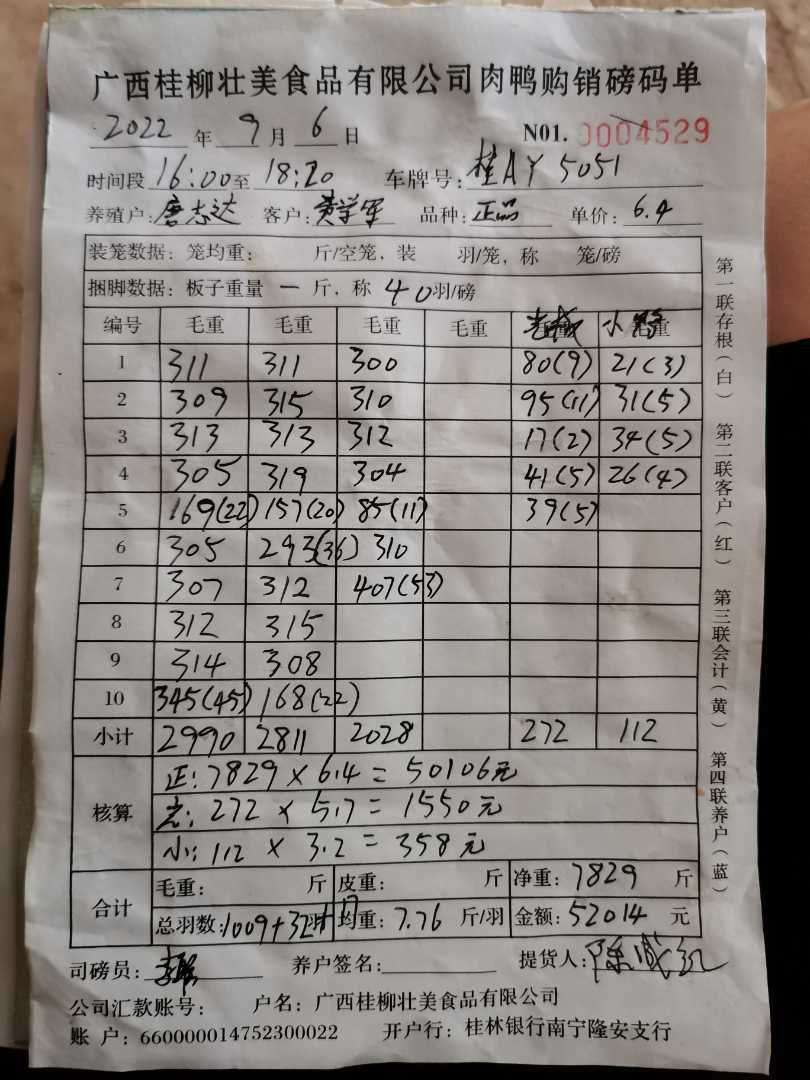 广西桂柳壮美食品有限公司肉鸭购销磅码单
2022 年 9 月 6 日 N01. 0004529
时间段 16:00 至 18:20 车牌号: 桂AY5051
养殖户: 唐志达 客户: 黄学军 品种: 正品 单价: 6.4
装笼数据: 笼均重: 斤/空笼, 装 羽/笼, 称 笼/磅
捆脚数据: 板子重量 一 斤, 称 40 羽/磅
编号 毛重 毛重 毛重 毛重 小 重
1 311 311 300 80(9) 21(3)
2 309 315 310 95(11) 31(5)
3 313 313 312 17(2) 34(5)
4 305 319 304 41(5) 26(4)
5 169(22) 157(20) 85(11) 39(5)
6 305 293(36) 310
7 307 312 407(53)
8 312 315
9 314 308
10 345(45) 168(22)
小计 2990 2811 2028 272 112
核算
正: 7829 × 6.4 = 50106元
光: 272 × 5.7 = 1550元
小: 112 × 3.2 = 358元
合计
毛重: 斤 皮重: 斤 净重: 7829 斤
总羽数: 1009+32+17 均重: 7.76 斤/羽 金额: 52014 元
司磅员: 养户签名: 提货人:
公司汇款账号: 户名: 广西桂柳壮美食品有限公司
账 户: 660000014752300022 开户行: 桂林银行南宁隆安支行
第一联存根(白) 第二联客户(红) 第三联会计(黄) 第四联养户(蓝)